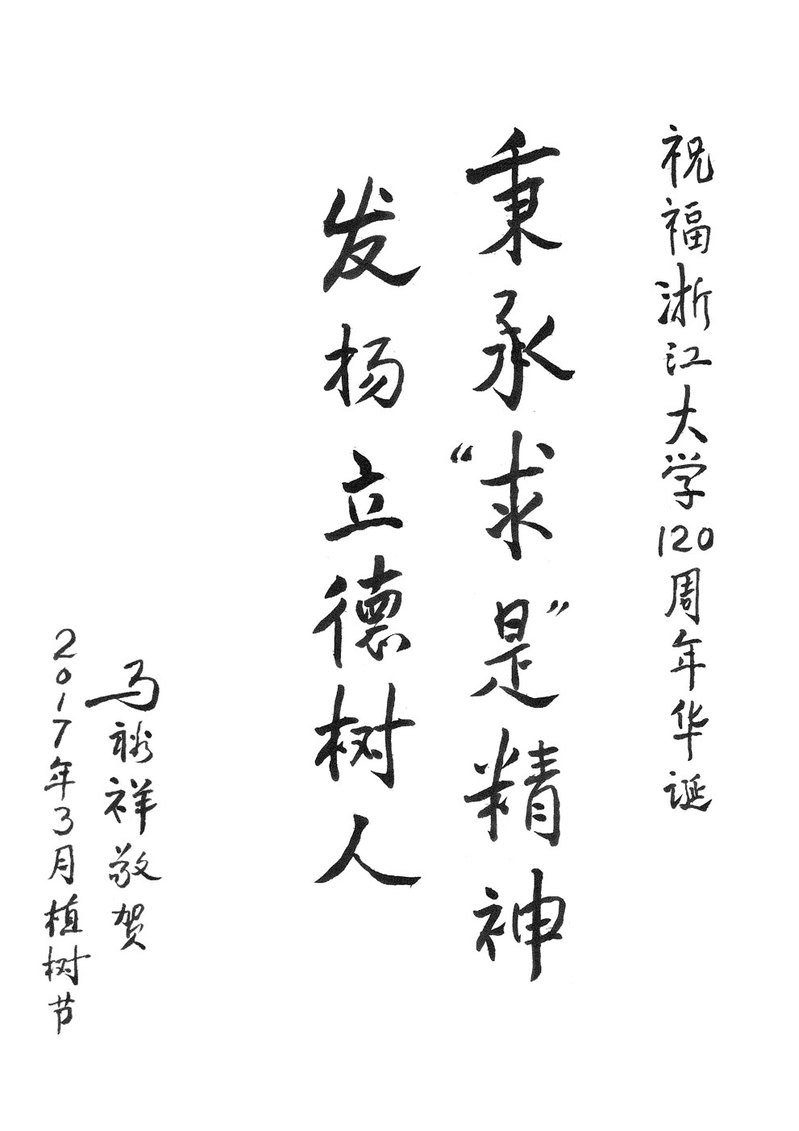 祝福浙江大学120周年华诞
秉承“求是”精神
发杨立德树人
马裕祥敬贺
2017年3月植树节